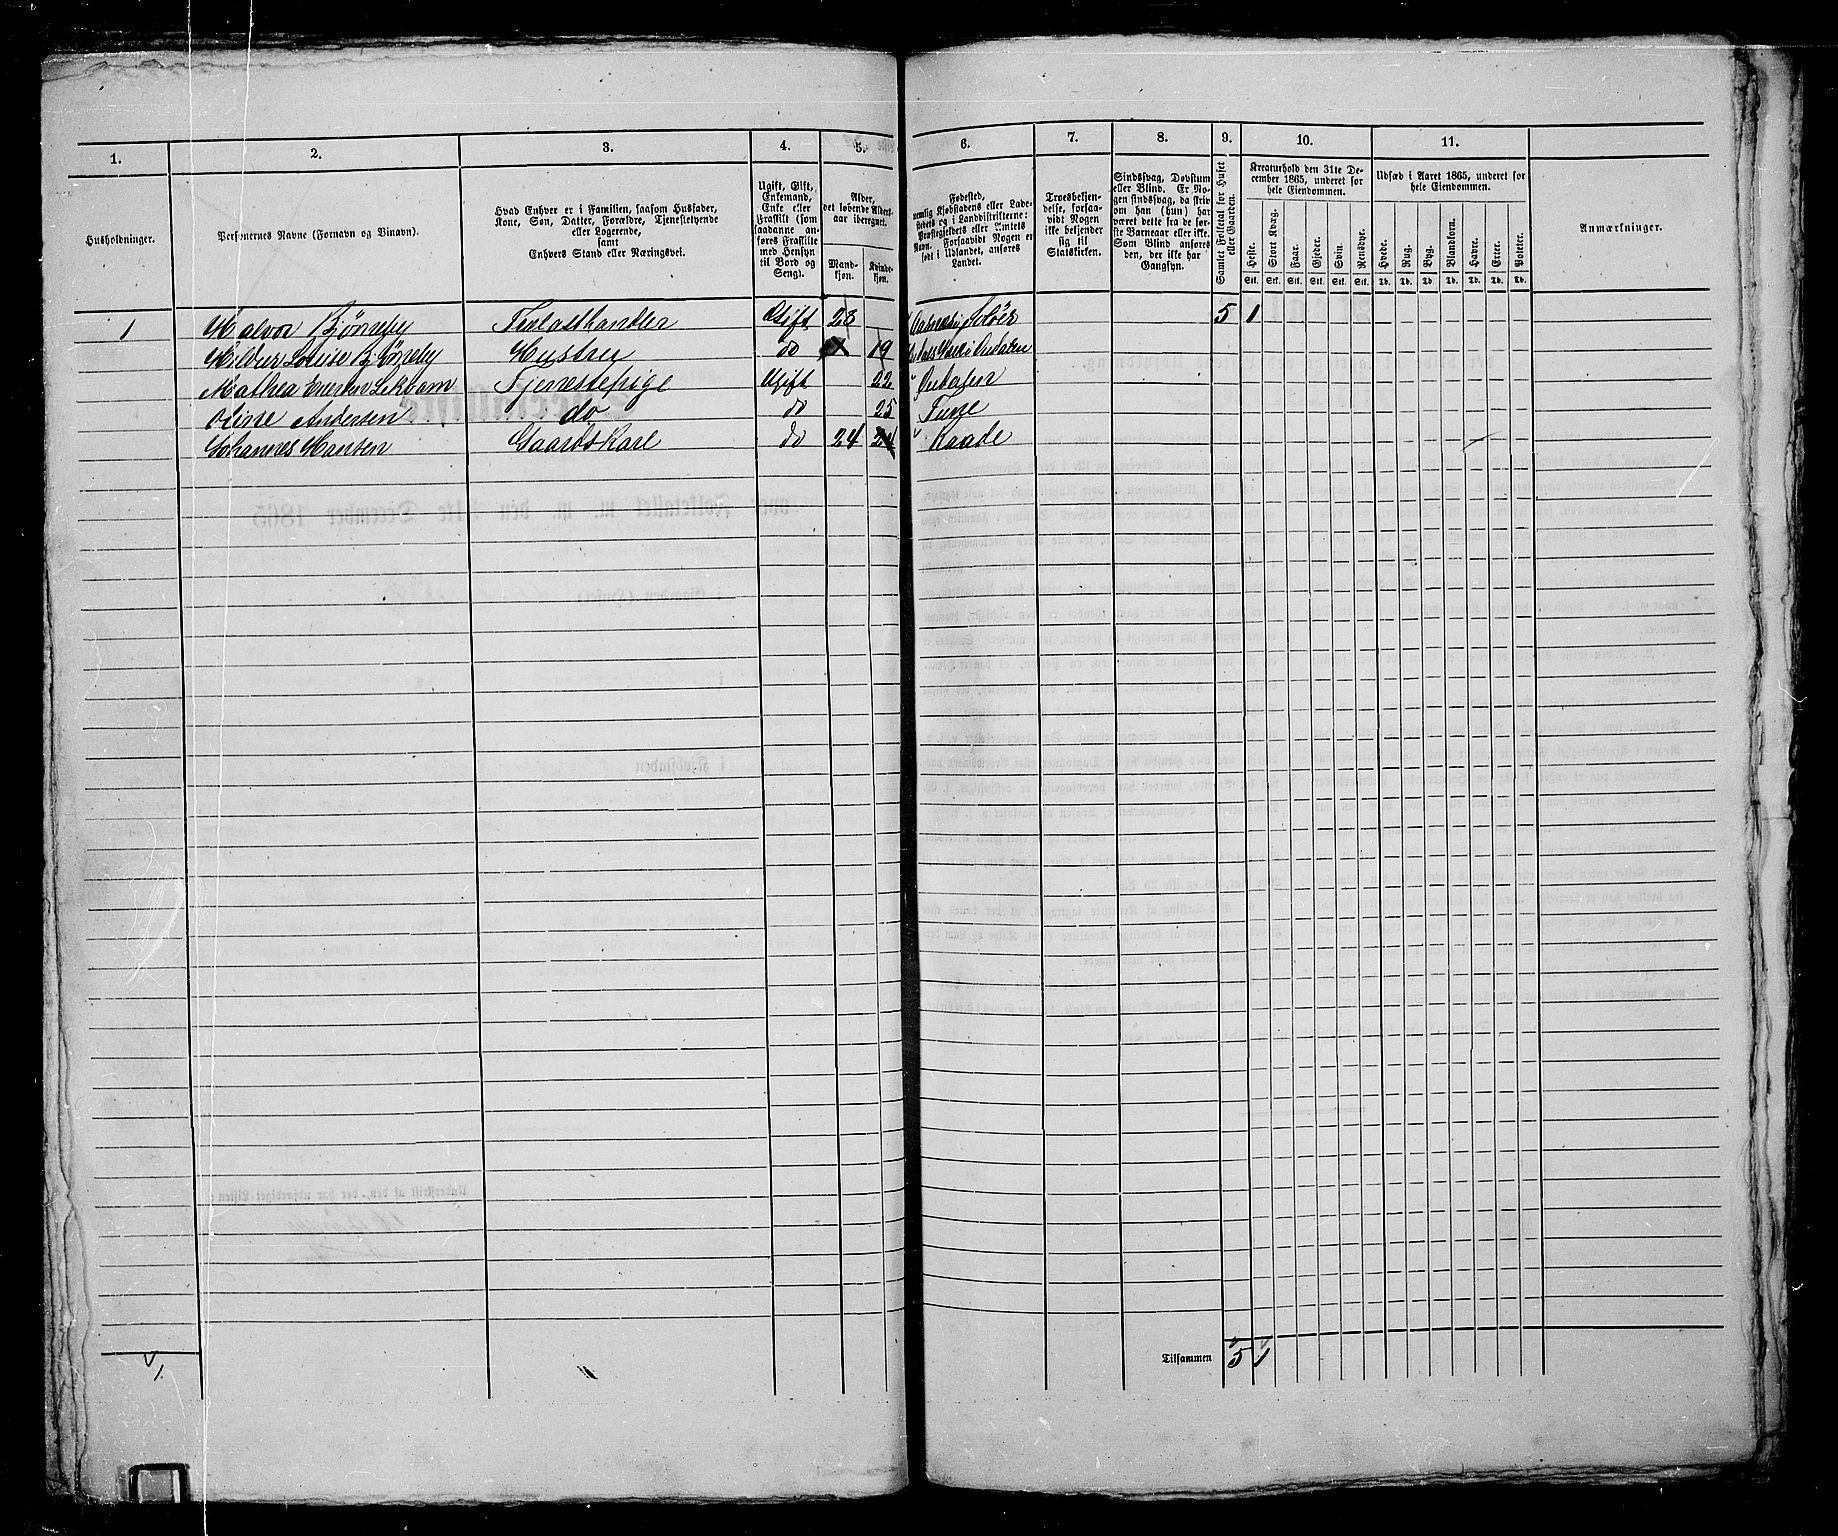 1. 2. 3. 4. 5. 6. 7. 8. 9. 10. 11.
Husholdninger.
Personernes Navne (Fornavn og Binavn).
Hvad Enhver er i Familien, saasom Husfader,
Kone, Søn, Datter, Forældre, Tjenestetyende
eller Logerende,
samt
Enhvers Stand eller Næringsvei.
Ugift, Gift,
Enkemand,
Enke eller
Fraskilt (som
saadanne an-
føres Fraskilte
med Hensyn
til Bord og
Seng).
Alder,
det løbende Alders-
aar iberegnet.
Mand-
kjøn.
Kvinde-
kjøn.
Fødested,
nemlig Kjøbstadens eller Lade-
stedets og i Landdistrikterne:
Præstegjeldets eller Amtets
Navn. Forsaavidt Nogen er
født i Udlandet, anføres
Landet.
Troesbekjen-
delse, forsaa-
vidt Nogen
ikke bekjender
sig til
Statskirken.
Sindssvag, Døvstum
eller Blind. Er No-
gen sindssvag, da skriv
om han (hun) har
været dette fra de før-
ste Barneaar eller ikke.
Som Blind anføres
den, der ikke har
Gangsyn.
Samlet Folketal for Huset
eller Gaarden.
Kreaturhold den 31te De-
cember 1865, underet for
hele Eiendommen.
Heste. Stort Kvæg. Faar. Gjeder. Svin. Rensdyr.
Stk. Stk. Stk. Stk. Stk. Stk.
Udsæd i Aaret 1865, underet for
hele Eiendommen.
Hvede. Rug. Byg. Blandkorn. Havre. Erter. Poteter.
Td. Td. Td. Td. Td. Td. Td.
Anmærkninger.
1 Halvor Bjørneby Gift 28 Solør 5 1
Hildur Louise Bjørneby Hustru do 19
Mathea Ugift 22
Oline Andersen do do 25 Tune
Johannes Hansen Gaardskarl do 24 24 Raade
Tilsammen 5 1